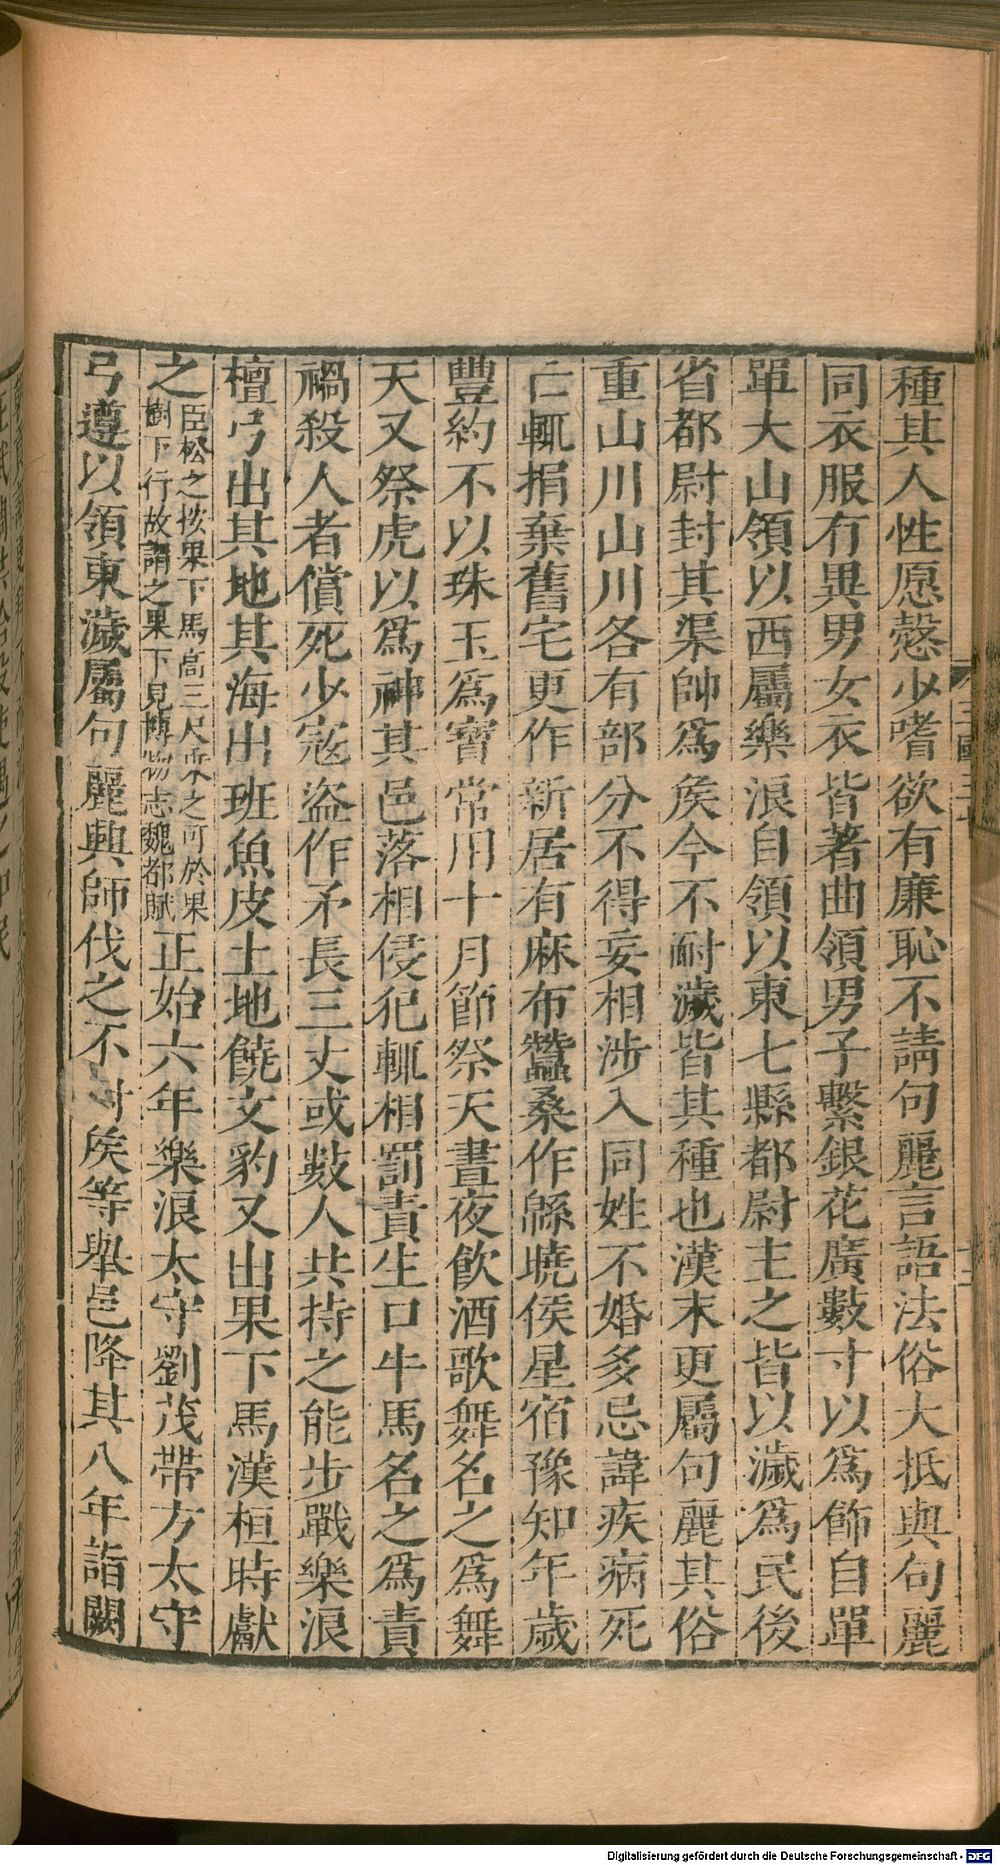 種其人性愿慤少嗜欲有廉恥不請句麗言語法俗大抵與句麗
同衣服有異男女衣皆著曲領男子繫銀花廣數寸以爲飾自單
單大山領以西屬樂浪自領以東七縣都尉主之皆以濊爲民後
省都尉封其渠帥爲侯今不耐濊皆其種也漢末更屬句麗其俗
重山川山川各有部分不得妄相涉入同姓不婚多忌諱疾病死
亡輒捐棄舊宅更作新居有麻布蠶桑作緜曉侯星宿豫知年歲
豐約不以珠玉爲寶常用十月節祭天晝夜飲酒歌舞名之爲舞
天又祭虎以爲神其邑落相侵犯輒相罰責生口牛馬名之爲責
禍殺人者償死少寇盜作矛長三丈或數人共持之能步戰樂浪
檀弓出其地其海出班魚皮土地饒文豹又出果下馬漢桓時獻
之臣松之按果下馬高三尺乘之可於果樹下行故謂之果下見博物志魏都賦正始六年樂浪太守劉茂帶方太守
弓遵以領東濊屬句麗興師伐之不侯等舉邑降其八年詣闕
三國三十
Digitalisierung gefördert durch die Deutsche Forschungsgemeinschaft - DFG